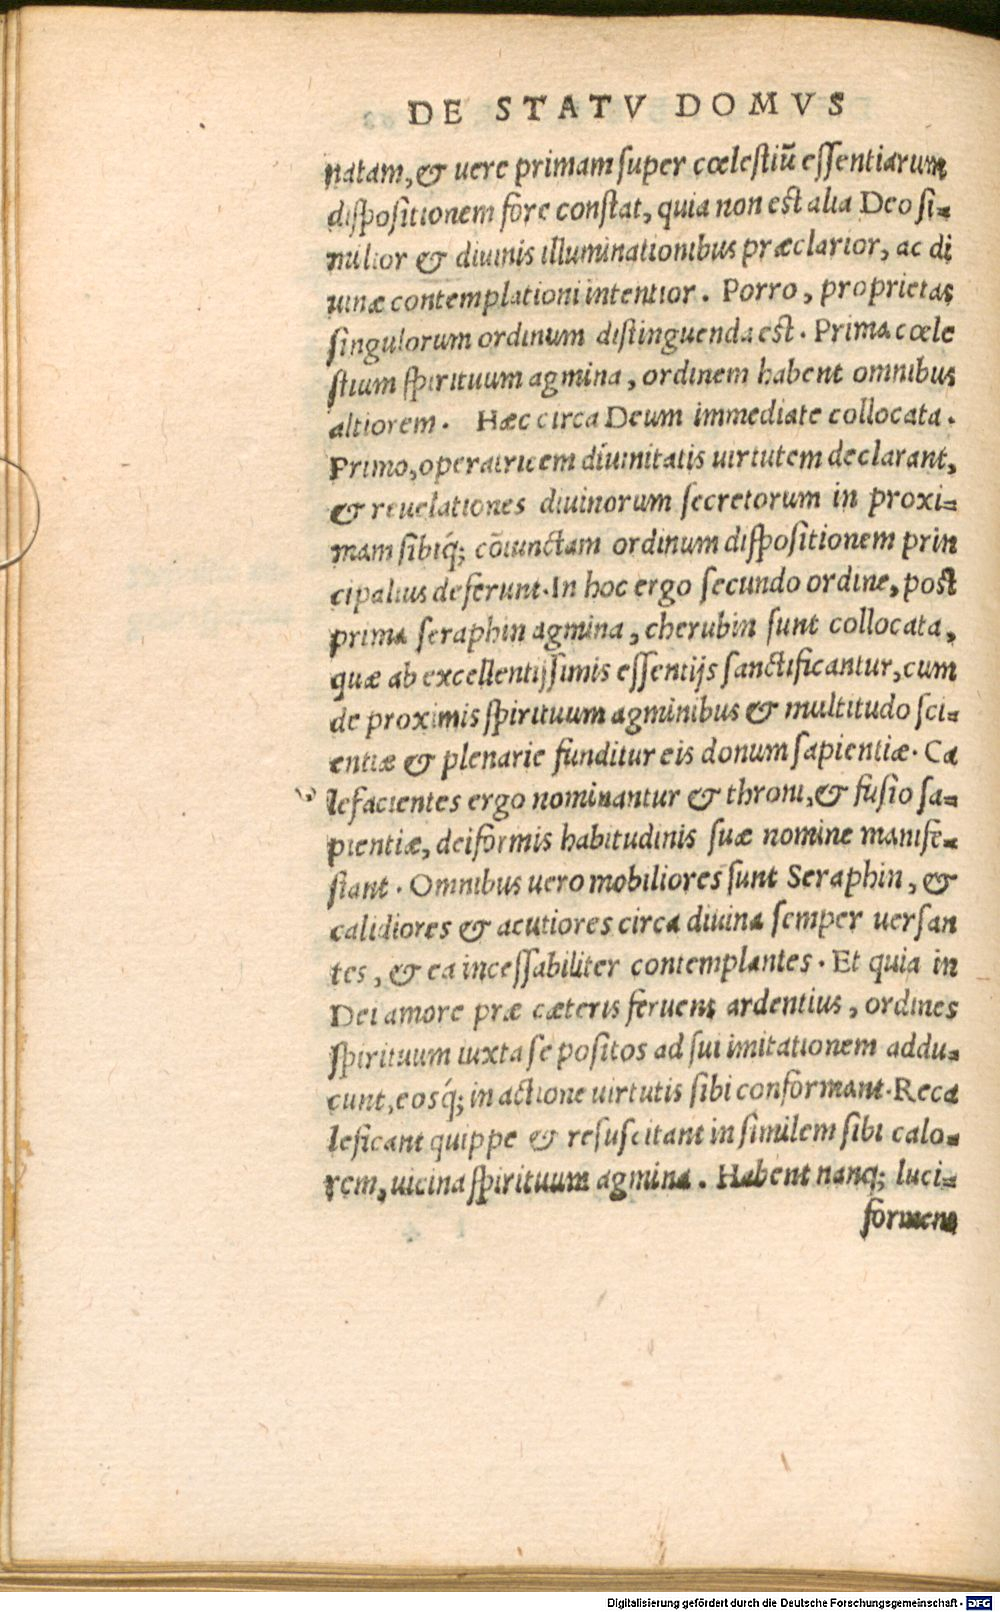 DE STATV DOMVS
natam, & vere primam super cœlestiũ essentiarum
dispositionem fore constat, quia non est alia Deo si-
milior & diuinis illuminationibus præclarior, ac di
uinæ contemplationi intentior. Porro, proprietas
singulorum ordinum distinguenda est. Prima cœle
stium spirituum agmina, ordinem habent omnibus
altiorem. Hæc circa Deum immediate collocata.
Primo, operatricem diuinitatis uirtutem declarant,
& reuelationes diuinorum secretorum in proxi-
mam sibiq́; cõiunctam ordinum dispositionem prin
cipalius deferunt. In hoc ergo secundo ordine, post
prima seraphin agmina, cherubin sunt collocata,
quæ ab excellentissimis essentijs sanctificantur, cum
de proximis spirituum agminibus & multitudo sci-
entiæ & plenarie funditur eis donum sapientiæ. Ca
lefacientes ergo nominantur & throni, & fusio sa-
pientiæ, deiformis habitudinis suæ nomine manife-
stant. Omnibus uero mobiliores sunt Seraphin, &
calidiores & acutiores circa diuina semper uersan
tes, & ea incessabiliter contemplantes. Et quia in
Dei amore præ cæteris feruent ardentius, ordines
spirituum iuxta se positos ad sui imitationem addu-
cunt, eosq́; in actione uirtutis sibi conformant. Reca
leficant quippe & resuscitant in similem sibi calo-
rem, uicina spirituum agmina. Habent nanq; luci-
formem
Digitalisierung gefördert durch die Deutsche Forschungsgemeinschaft - DFG